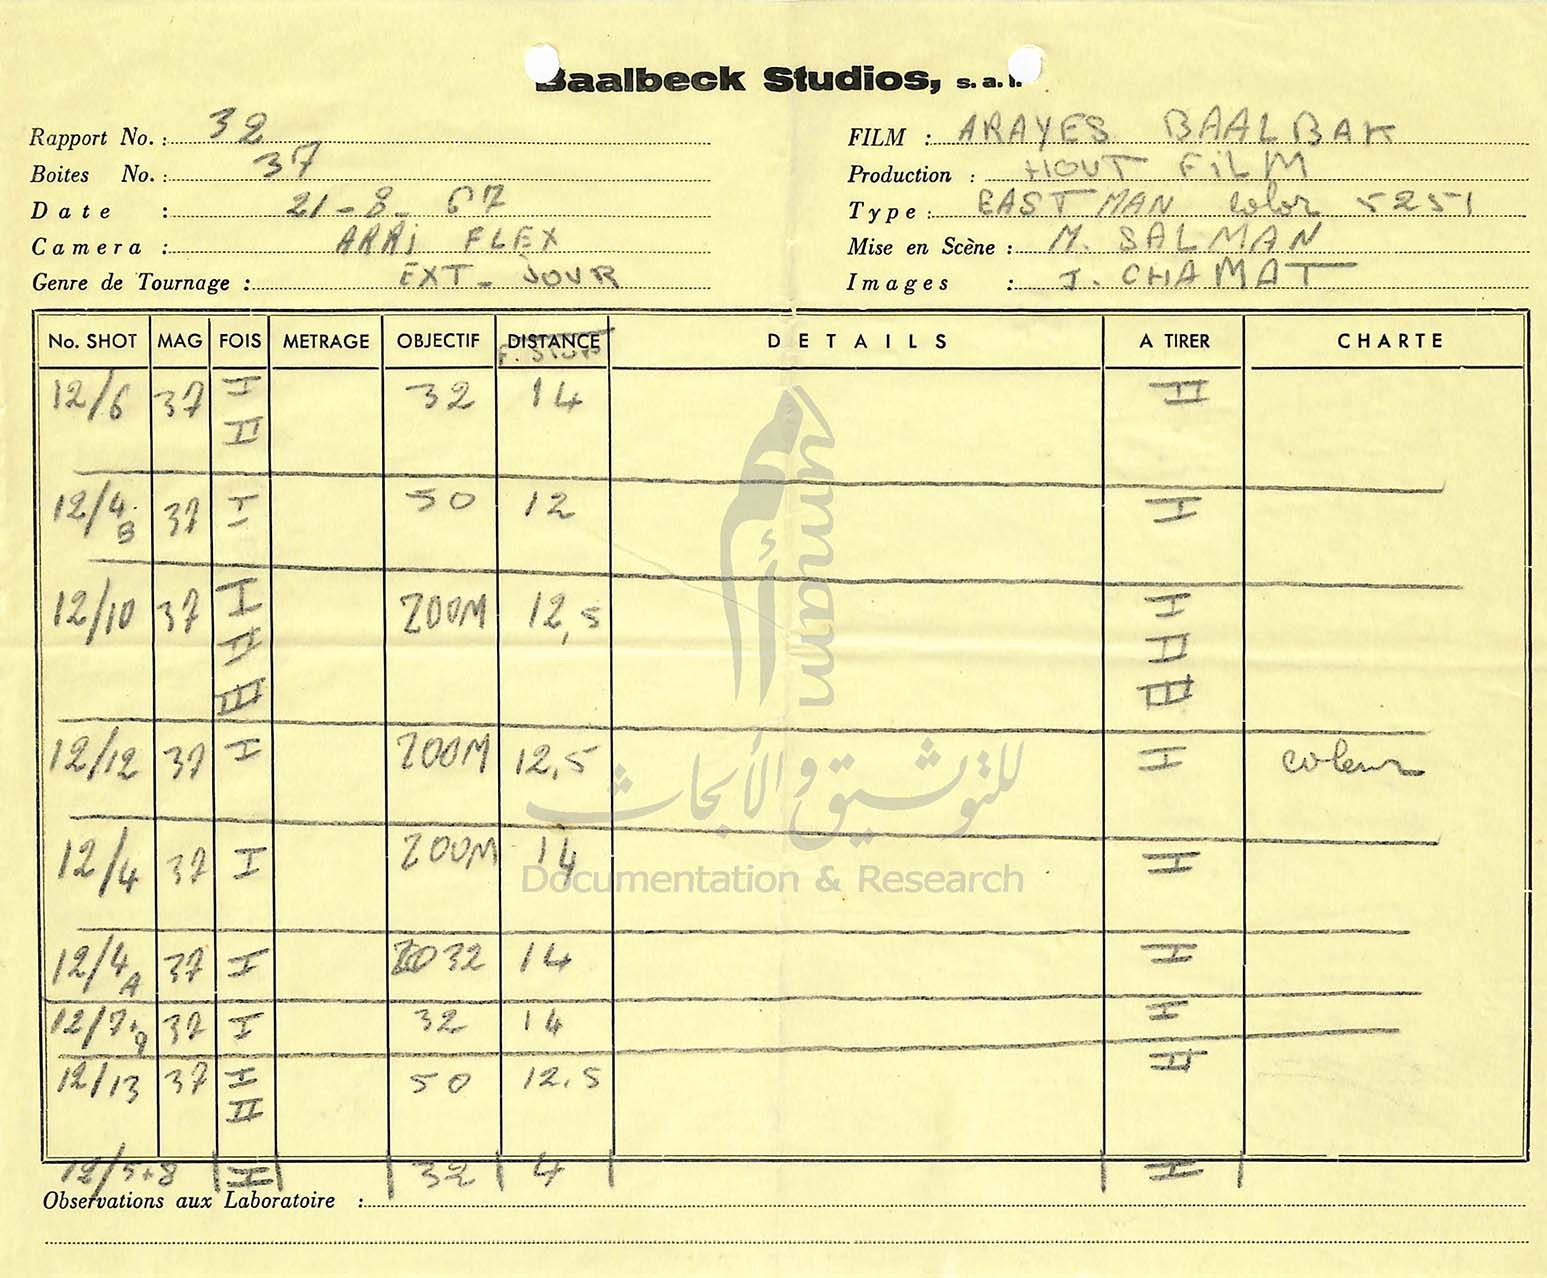 Baalbeck Studios, s.a.l.
Rapport No. : 32
FILM : ARAYES BAALBAK
Boites No. : 37
Production : HOUT FiLM
Date : 21-8-67
Type : EASTMAN color 5251
Camera : ARRi FLEX
Mise en Scène : M. SALMAN
Genre de Tournage : EXT - JOUR
Images : J. CHAMAT
No. SHOT MAG FOIS METRAGE OBJECTIF DISTANCE DETAILS A TIRER CHARTE
F. STOP
12/6 37 I 32 14 II
II
12/4 B 37 I 50 12 I
12/10 37 I ZOOM 12,5 I
II II
III III
12/12 37 I ZOOM 12,5 I couleur
12/4 37 I ZOOM 14 I
12/4 A 37 I 32 14 I
12/7+9 37 I 32 14 I
12/13 37 I 50 12.5 II
II
12/5+8 I 32 4 I
Observations aux Laboratoire :
umam
أمم
للتوثيق والأبحاث
Documentation & Research